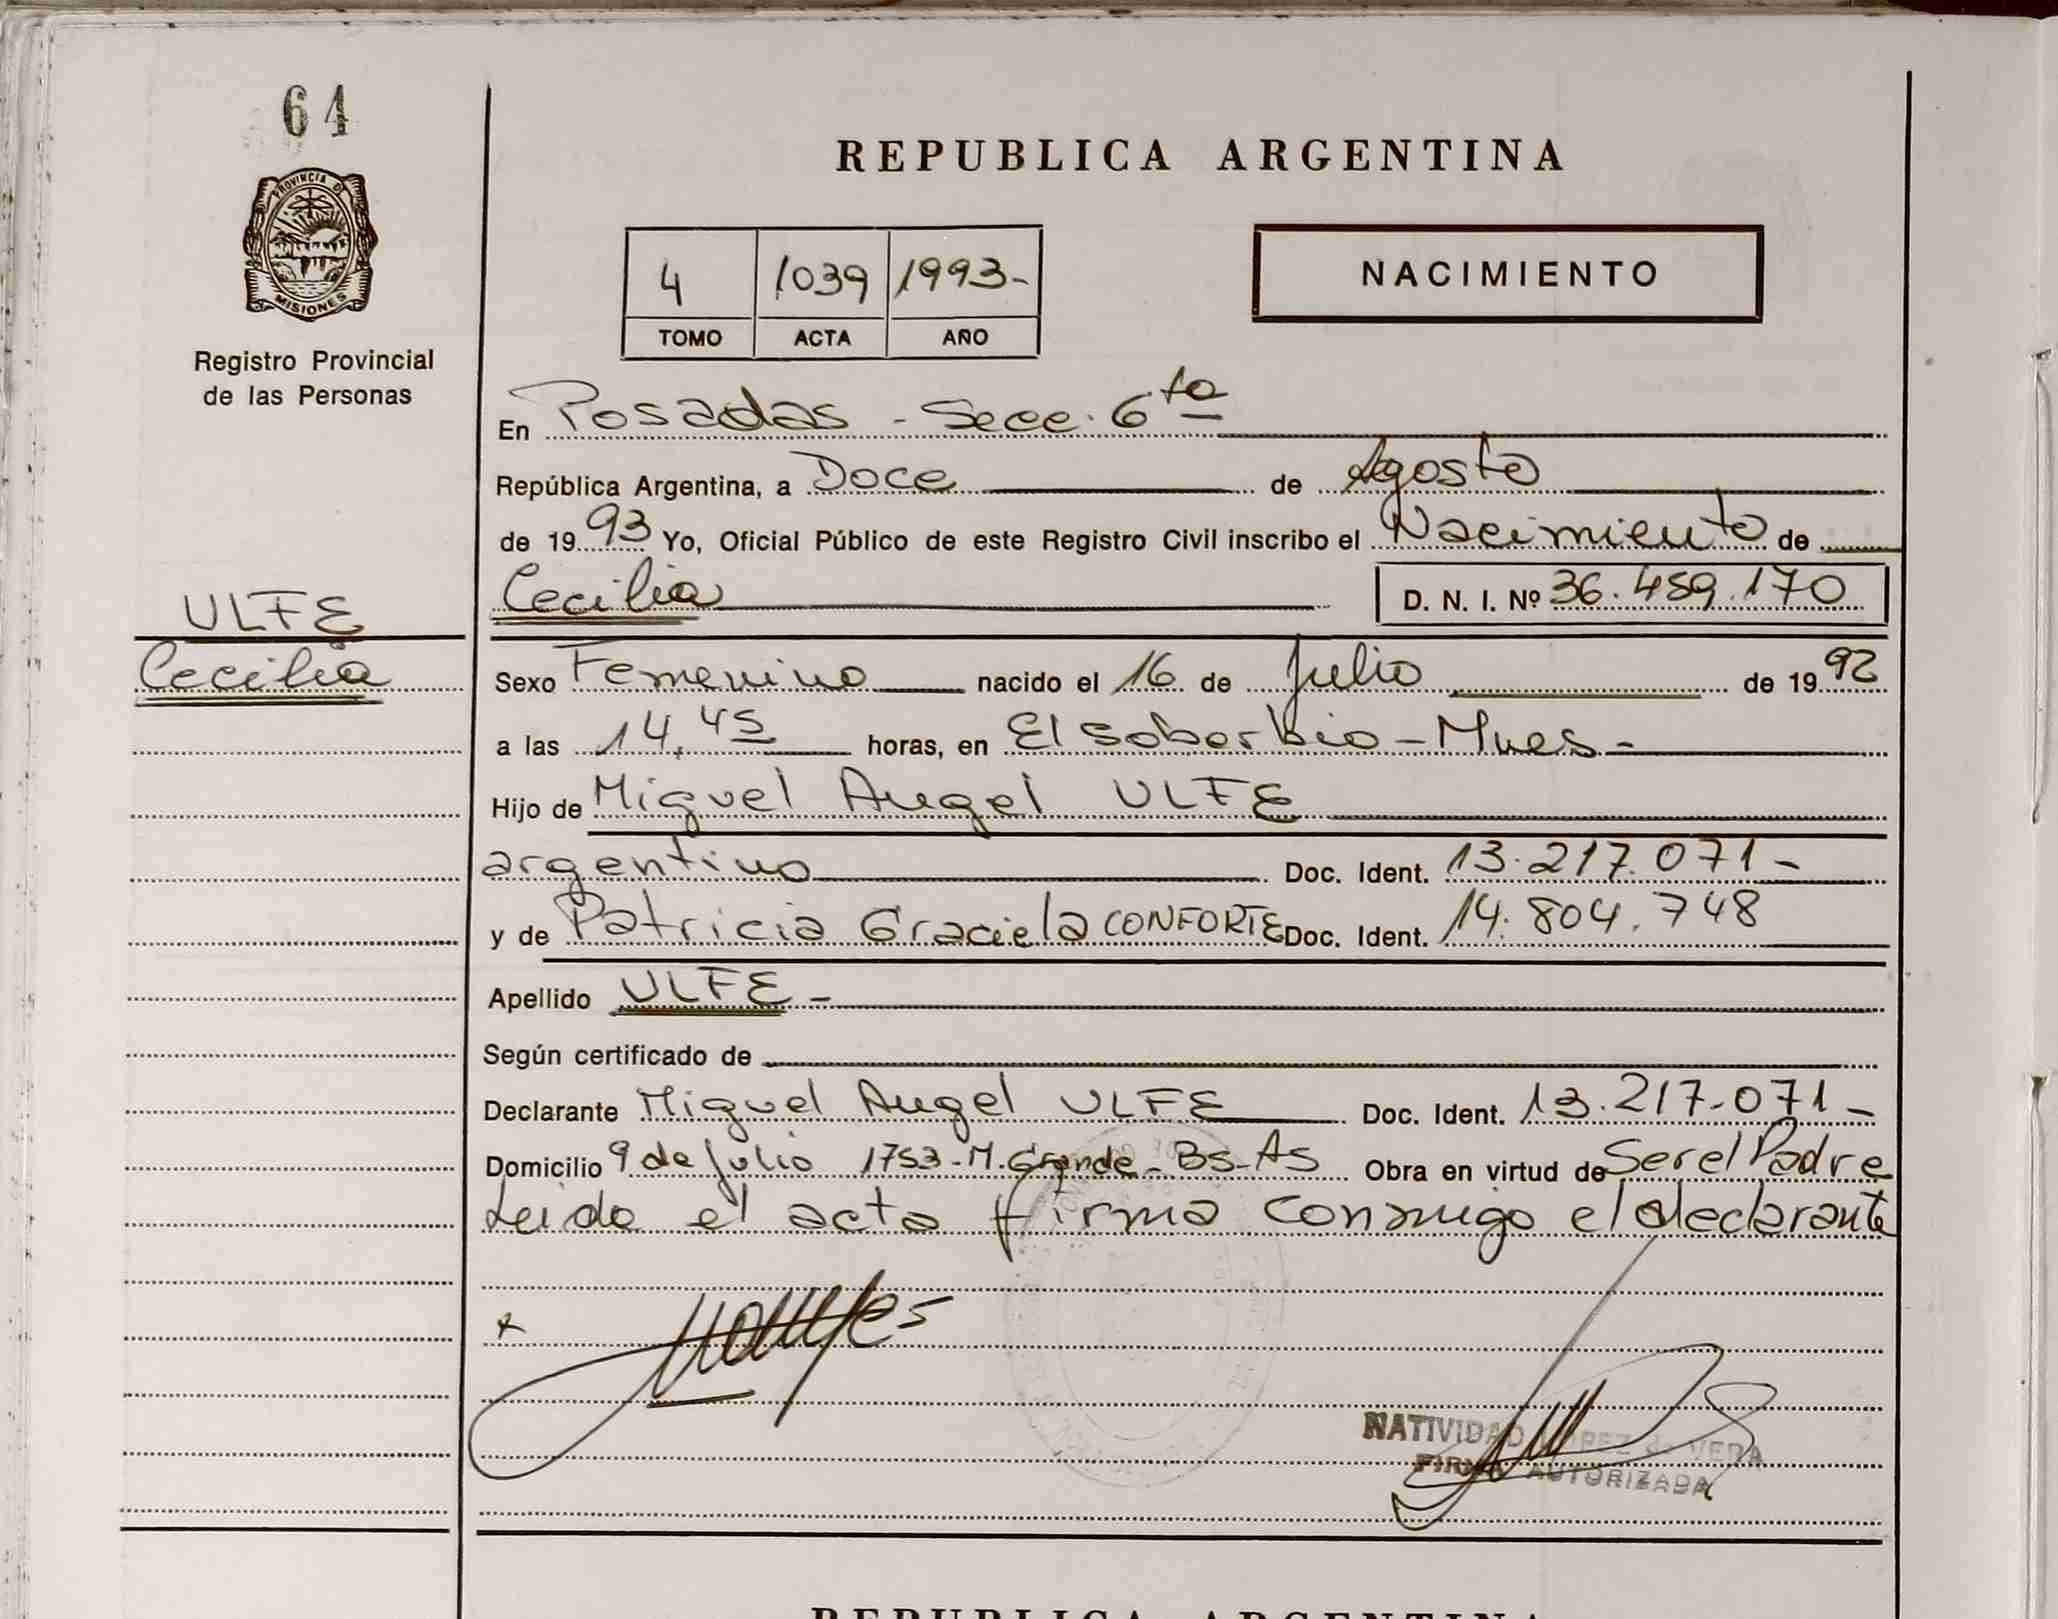 64
PROVINCIA DE
MISIONES
Registro Provincial
de las Personas
ULFE
Cecilia
REPUBLICA ARGENTINA
4 1039 1993-
TOMO ACTA AÑO
NACIMIENTO
En Posadas - Secc. 6ta
República Argentina, a Doce de Agosto
de 1993 Yo, Oficial Público de este Registro Civil inscribo el Nacimiento de
Cecilia D. N. I. Nº 36.459.170
Sexo Femenino nacido el 16 de Julio de 1992
a las 14,45 horas, en El Soberbio - Mnes -
Hijo de Miguel Angel ULFE
argentino Doc. Ident. 13.217.071-
y de Patricia Graciela CONFORTE Doc. Ident. 14.804.748
Apellido ULFE -
Según certificado de
Declarante Miguel Angel ULFE Doc. Ident. 13.217.071-
Domicilio 9 de Julio 1753-M. Grande-Bs-As Obra en virtud de Ser el Padre
Leido el acta firma conmigo el declarante
NATIVIDAD LOPEZ de VERA
FIRMA AUTORIZADA
REPUBLICA ARGENTINA